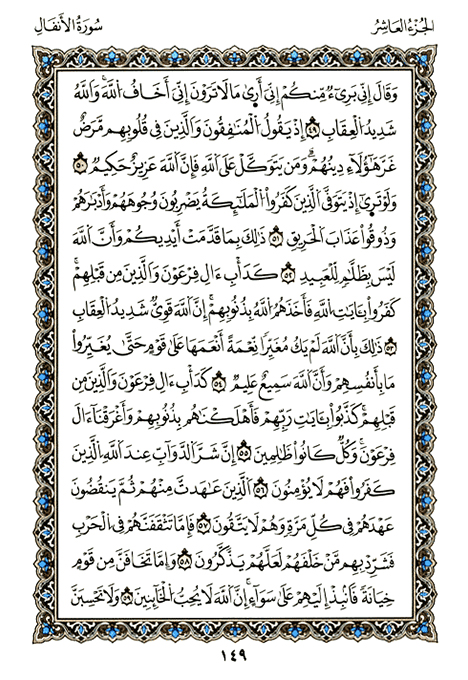 الجُزْءُ العَاشِرُ سُورَةُ الأَنفَالِ
وَقَالَ إِنِّي بَرِيٓءٌ مِّنكُمْ إِنِّيَ أَرٜىٰ مَا لَا تَرَوْنَ إِنِّيَ أَخَافُ اللَّهَۚ وَاللَّهُ
شَدِيدُ الْعِقَابِ ٤٩ إِذْ يَقُولُ الْمُنَٰفِقُونَ وَالَّذِينَ فِي قُلُوبِهِم مَّرَضٌ
غَرَّ هَٰٓؤُلَآءِ دِينُهُمْۗ وَمَن يَتَوَكَّلْ عَلَى اللَّهِ فَإِنَّ اللَّهَ عَزِيزٌ حَكِيمٌ ٥٠
وَلَوْ تَرٜىٰٓ إِذْ يَتَوَفَّى الَّذِينَ كَفَرُوا۟ الْمَلَٰٓئِكَةُ يَضْرِبُونَ وُجُوهَهُمْ وَأَدْبَٰرَهُمْ
وَذُوقُوا۟ عَذَابَ الْحَرِيقِ ٥١ ذَٰلِكَ بِمَا قَدَّمَتْ أَيْدِيكُمْ وَأَنَّ اللَّهَ
لَيْسَ بِظَلَّٰمٍ لِّلْعَبِيدِ ٥٢ كَدَأْبِ ءَالِ فِرْعَوْنَ وَالَّذِينَ مِن قَبْلِهِمْۚ
كَفَرُوا۟ بِـَٔايَٰتِ اللَّهِ فَأَخَذَهُمُ اللَّهُ بِذُنُوبِهِمْۚ إِنَّ اللَّهَ قَوِيٌّ شَدِيدُ الْعِقَابِ
٥٣ ذَٰلِكَ بِأَنَّ اللَّهَ لَمْ يَكُ مُغَيِّرًا نِّعْمَةً أَنْعَمَهَا عَلَىٰ قَوْمٍ حَتَّىٰ يُغَيِّرُوا۟
مَا بِأَنفُسِهِمْ وَأَنَّ اللَّهَ سَمِيعٌ عَلِيمٌ ٥٤ كَدَأْبِ ءَالِ فِرْعَوْنَ وَالَّذِينَ مِن
قَبْلِهِمْۚ كَذَّبُوا۟ بِـَٔايَٰتِ رَبِّهِمْ فَأَهْلَكْنَٰهُم بِذُنُوبِهِمْ وَأَغْرَقْنَآ ءَالَ
فِرْعَوْنَۚ وَكُلٌّ كَانُوا۟ ظَٰلِمِينَ ٥٥ إِنَّ شَرَّ الدَّوَآبِّ عِندَ اللَّهِ الَّذِينَ
كَفَرُوا۟ فَهُمْ لَا يُؤْمِنُونَ ٥٦ الَّذِينَ عَٰهَدتَّ مِنْهُمْ ثُمَّ يَنقُضُونَ
عَهْدَهُمْ فِي كُلِّ مَرَّةٍ وَهُمْ لَا يَتَّقُونَ ٥٧ فَإِمَّا تَثْقَفَنَّهُمْ فِي الْحَرْبِ
فَشَرِّدْ بِهِم مَّنْ خَلْفَهُمْ لَعَلَّهُمْ يَذَّكَّرُونَ ٥٨ وَإِمَّا تَخَافَنَّ مِن قَوْمٍ
خِيَانَةً فَانۢبِذْ إِلَيْهِمْ عَلَىٰ سَوَآءٍۚ إِنَّ اللَّهَ لَا يُحِبُّ الْخَآئِنِينَ ٥٩ وَلَا تَحْسِبَنَّ
١٤٩